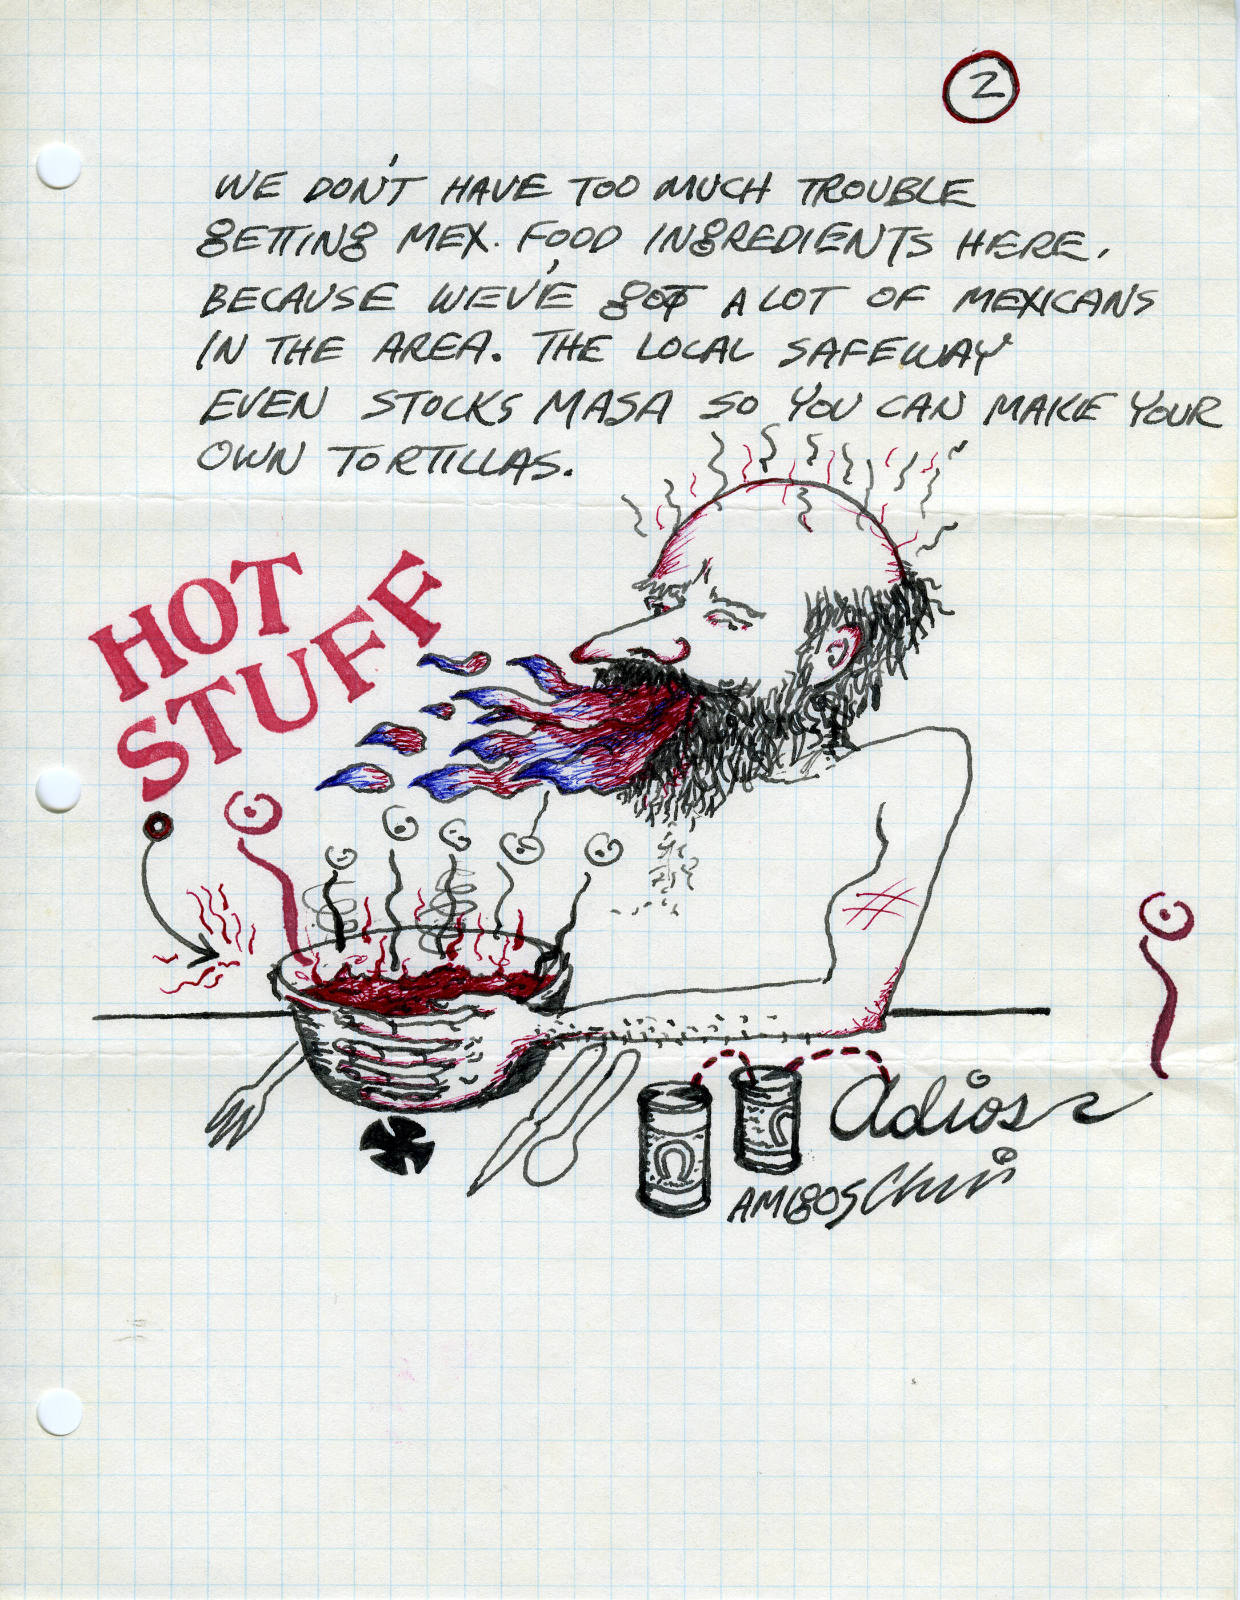 2
WE DON'T HAVE TOO MUCH TROUBLE
gETTINg MEX. FOOD INgREDIENTS HERE,
BECAUSE WEV'E gOT A LOT OF MEXICANS
IN THE AREA. THE LOCAL SAFEWAY
EVEN STOCKS MASA SO YOU CAN MAKE YOUR
OWN TORTILLAS.
HOT
STUFF
adios
AMIgOS